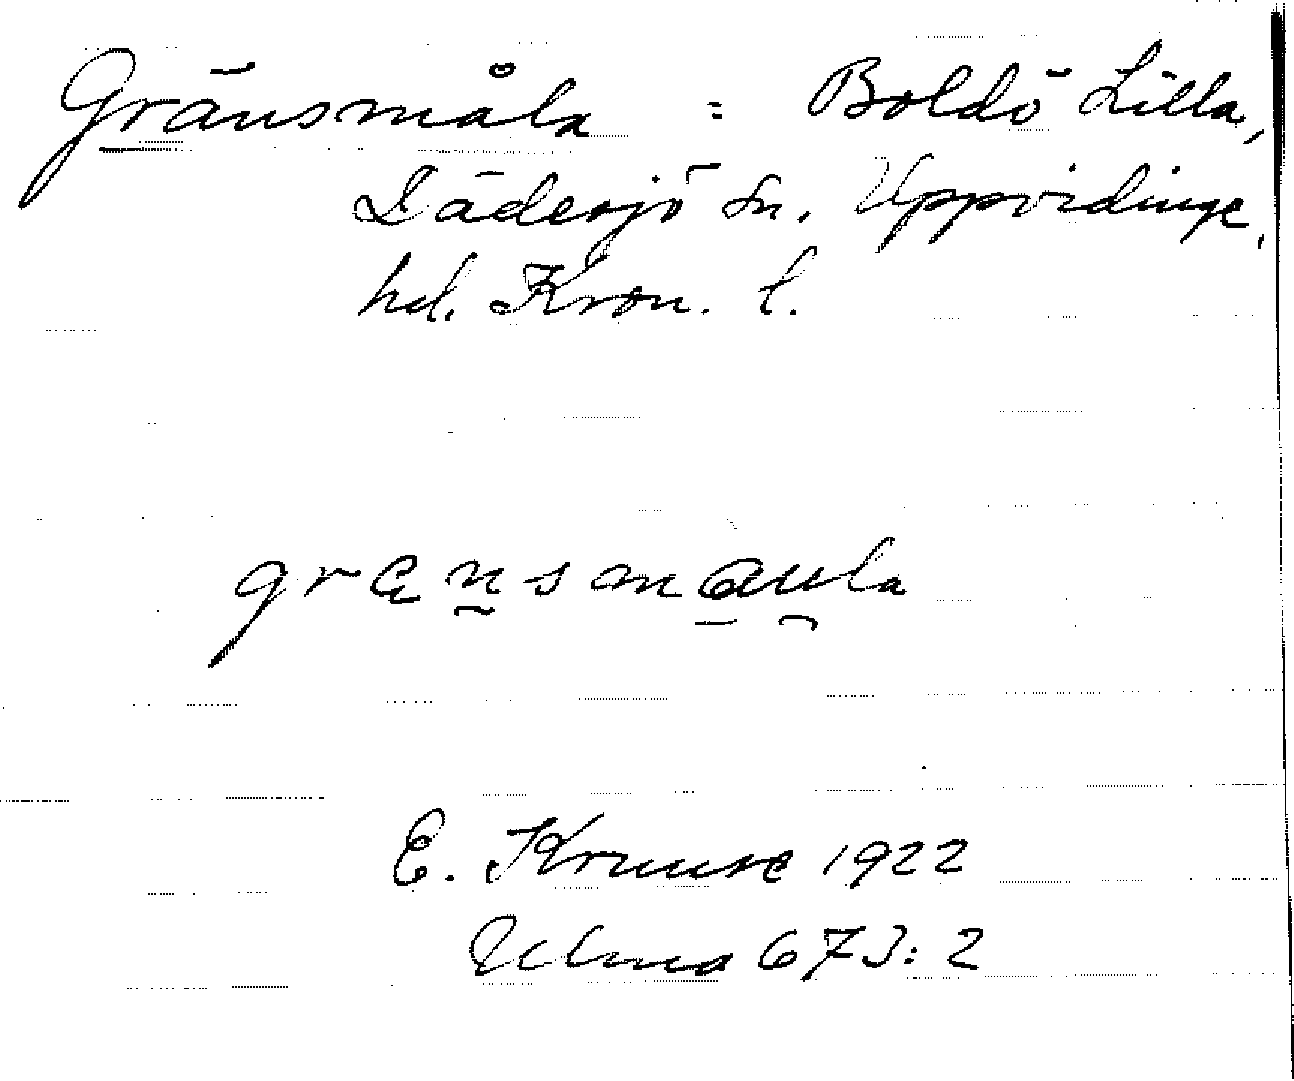 Gränsmåla : Boldö Lilla,
Dädesjö sn. Uppvidinge,
hd. Kron. l.
gransmaula
E. Kruuse 1922
Ulma 673:2